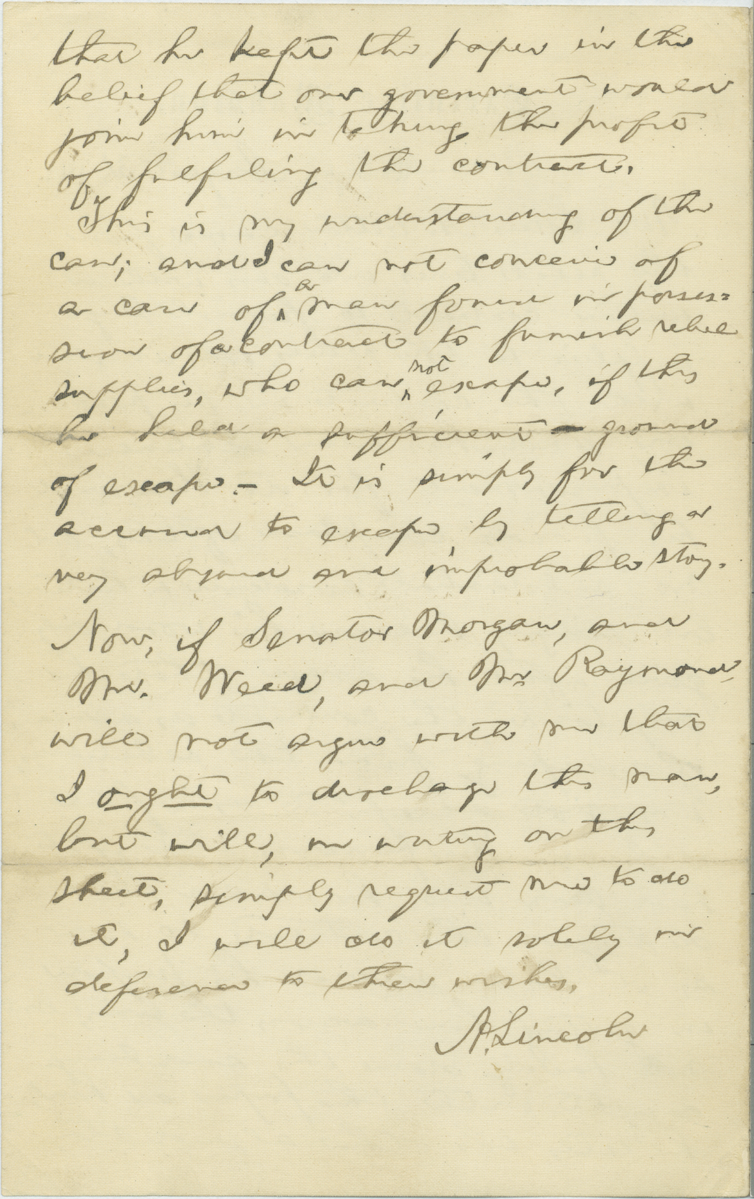 that he kept the paper in the
belief that our government would
join him in taking the profit
of fulfiling the contract.
This is my understanding of the
case; and I can not conceive of
a case of a man found in posses=
sion of a contract to furnish rebel
supplies, who can not escape, if this
be held a sufficient ground
of escape.— It is simply for the
accused to escape by telling a
very absurd and improbable story.
Now, if Senator Morgan, and
Mr. Weed, and Mr. Raymond,
will not argue with me that
I ought to discharge this man,
but will, in writing on this
sheet, simply request me to do
it, I will do it solely in
deference to their wishes.
A. Lincoln